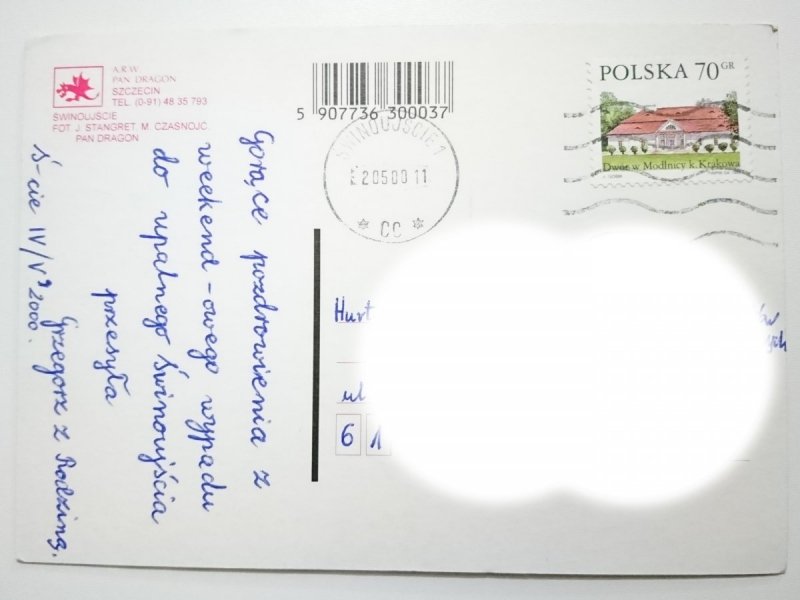 A.R.W.
PAN DRAGON
SZCZECIN
TEL. (0-91) 48 35 793
ŚWINOUJŚCIE
FOT. J. STANGRET, M. CZASNOJĆ,
PAN DRAGON
5 907736 300037
ŚWINOUJŚCIE 1
20500 11
* CC *
POLSKA 70 GR
Dwór w Modlnicy k. Krakowa
Gorące pozdrowienia z
weekend-owego wypadu
do upalnego Świnoujścia
przesyła
Grzegorz z Rodziną.
Ś-cie IV/V 2000.
Hurt
ul
6 1